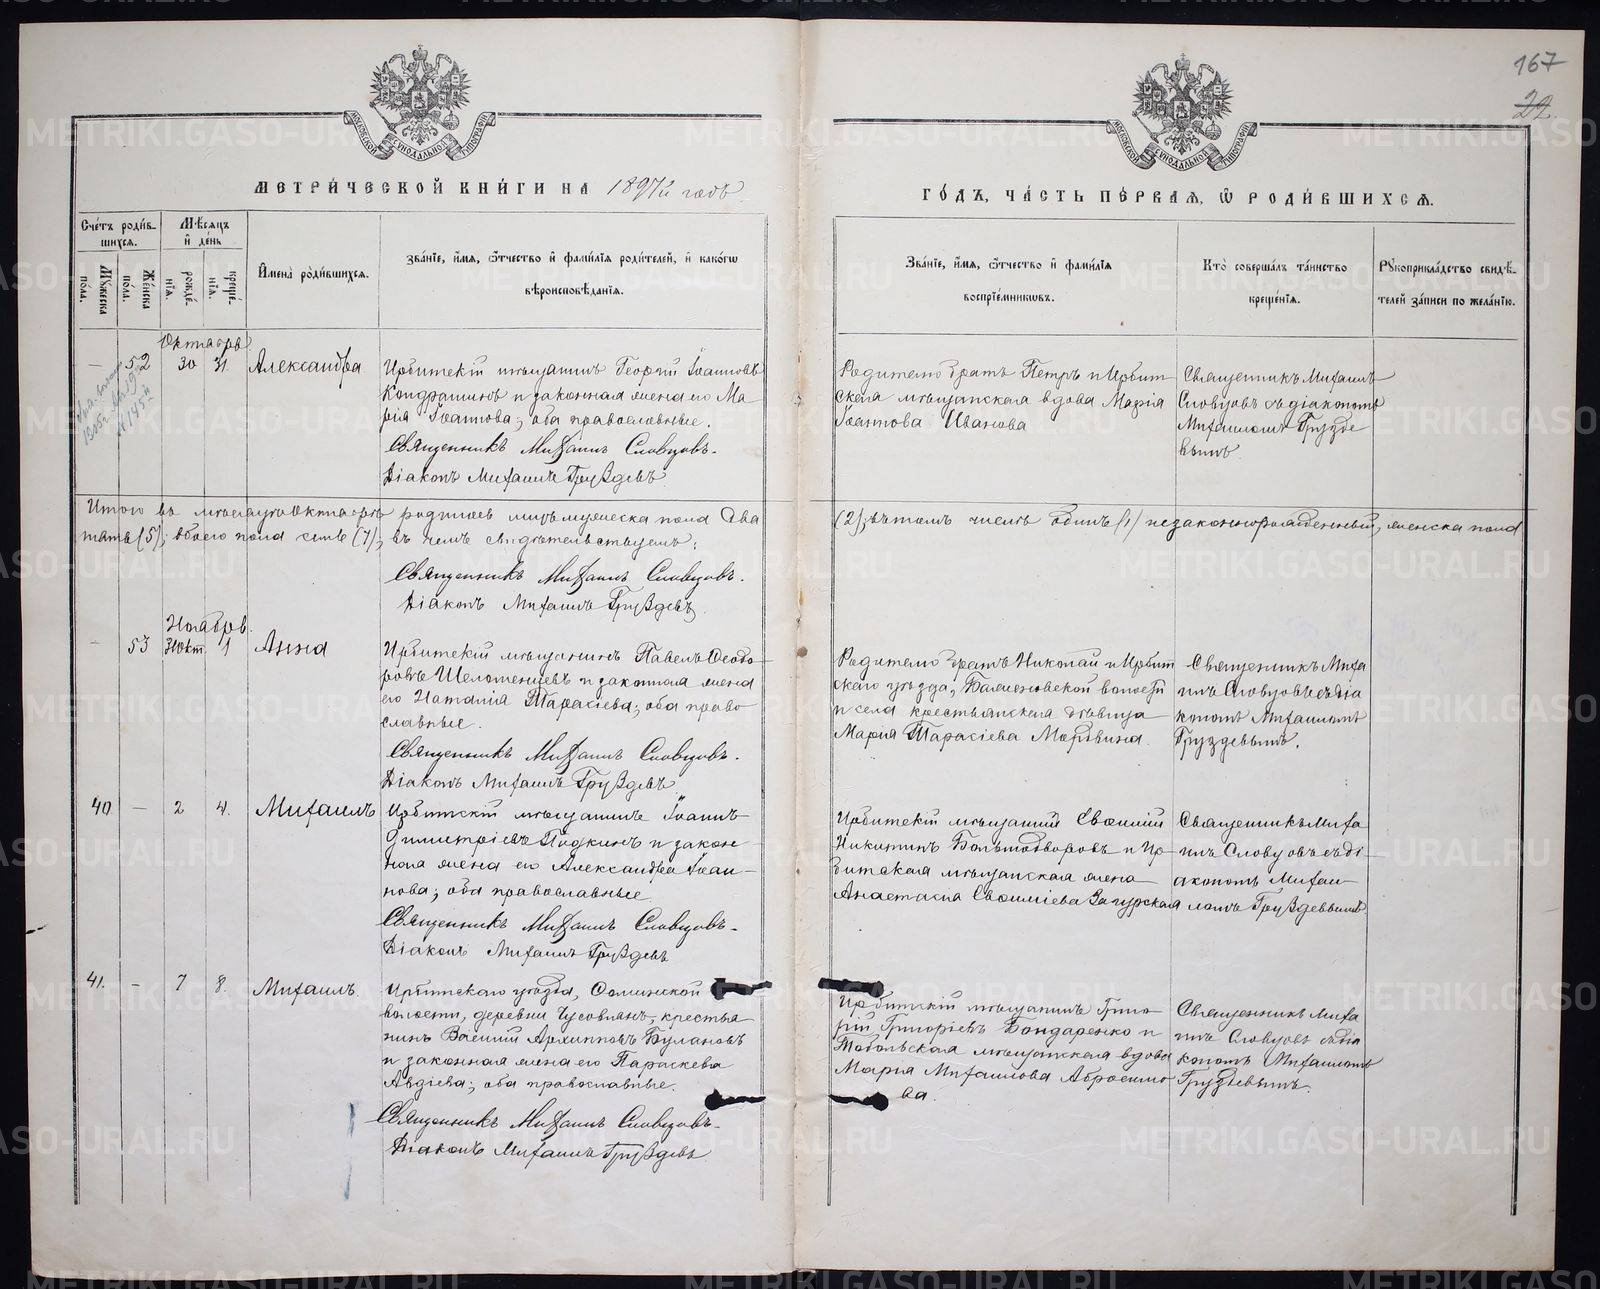 167
22
МОСКОВСКОЙ СѴНОДАЛЬНОЙ ТИПОГРАФІИ
МОСКОВСКОЙ СѴНОДАЛЬНОЙ ТИПОГРАФІИ
МЕТРИ́ЧЕСКОЙ КНИ́ГИ НА 1897й годъ
ГО́ДЪ, ЧА́СТЬ ПЕ́РВАЯ, Ѡ҆ РОДИ́ВШИХСЯ.
Сче́тъ роди́в-
шихся.
Мѣ́сяцъ
и҆ де́нь
Мꙋ́жеска
по́ла.
Же́нска
по́ла.
рожде́-
нїѧ.
креще́-
нїѧ.
И҆мена̀ роди́вшихся.
Зва́нїе, и҆́мѧ, ѻ҆́тчество и҆ фами́лїѧ роди́телей, и҆ како́гѡ
вѣроисповѣ́данїѧ.
Зва́нїе, и҆́мѧ, ѻ҆́тчество и҆ фами́лїѧ
воспрїе́мникѡвъ.
Кто̀ соверша́лъ та́инство
креще́нїѧ.
Рꙋкоприкла́дство свидѣ́-
телей за́писи по жела́нїю.
Октябрь
— 52 30 31 Александра
Ирбитскій мѣщанинъ Георгій Іоанновъ
Кондрашинъ и законная жена его Ма-
рія Іоаннова; оба православные.
Священникъ Михаилъ Словцовъ.
Діаконъ Михаилъ Груздевъ
Родителю братъ Петръ и Ирбит
ская мѣщанская вдова Марія
Іоаннова Иванова
Священникъ Михаилъ
Словцовъ съ діакономъ
Михаиломъ Грузде
вымъ
Итого въ мѣсяцѣ Октябрѣ родилось мужеска пола два
(2), въ томъ числѣ одинъ (1) незаконнорожденный, женска пола
пять (5), обоего пола семь (7), въ чемъ свидѣтельствуемъ:
Священникъ Михаилъ Словцовъ.
Діаконъ Михаилъ Груздевъ.
Ноябрь.
— 53 31 Окт. 1 Анна
Ирбитскій мѣщанинъ Павелъ Ѳеодо-
ровъ Шеломенцевъ и законная жена
его Наталія Тарасіева; оба право
славные.
Священникъ Михаилъ Словцовъ.
Діаконъ Михаилъ Груздевъ
Родителю братъ Николай и Ирбит
скаго уѣзда, волости
и села крестьянская дѣвица
Марія Тарасіева
Священникъ Миха
илъ Словцовъ съ діа
кономъ Михаиломъ
Груздевымъ.
40 — 2 4. Михаилъ
Ирбитскій мѣщанинъ Іоаннъ
Димитріевъ и закон-
ная жена его Александра Іоан-
нова; оба православные
Священникъ Михаилъ Словцовъ.
Діаконъ Михаилъ Груздевъ
Ирбитскій мѣщанинъ
Никитинъ Большедворовъ и Ир-
битская мѣщанская жена
Анастасія Загурская
Священникъ Миха
илъ Словцовъ съ ді-
акономъ Михаи
ломъ Груздевымъ
41. — 7 8. Михаилъ.
Ирбитскаго уѣзда,
волости, деревни Чусовлянъ, крестья
нинъ Василій Архипповъ Булановъ
и законная жена его Параскева
Авдіева; оба православные.
Священникъ Михаилъ Словцовъ.
Діаконъ Михаилъ Груздевъ
Ирбитскій мѣщанинъ Григо
рій Григоріевъ Бондаренко и
Тобольская мѣщанская вдова
Марія Михаилова Абросимо
ва.
Священникъ Миха
илъ Словцовъ съ діа
кономъ Михаиломъ
Груздевымъ.
METRIKI.GASO-URAL.RU